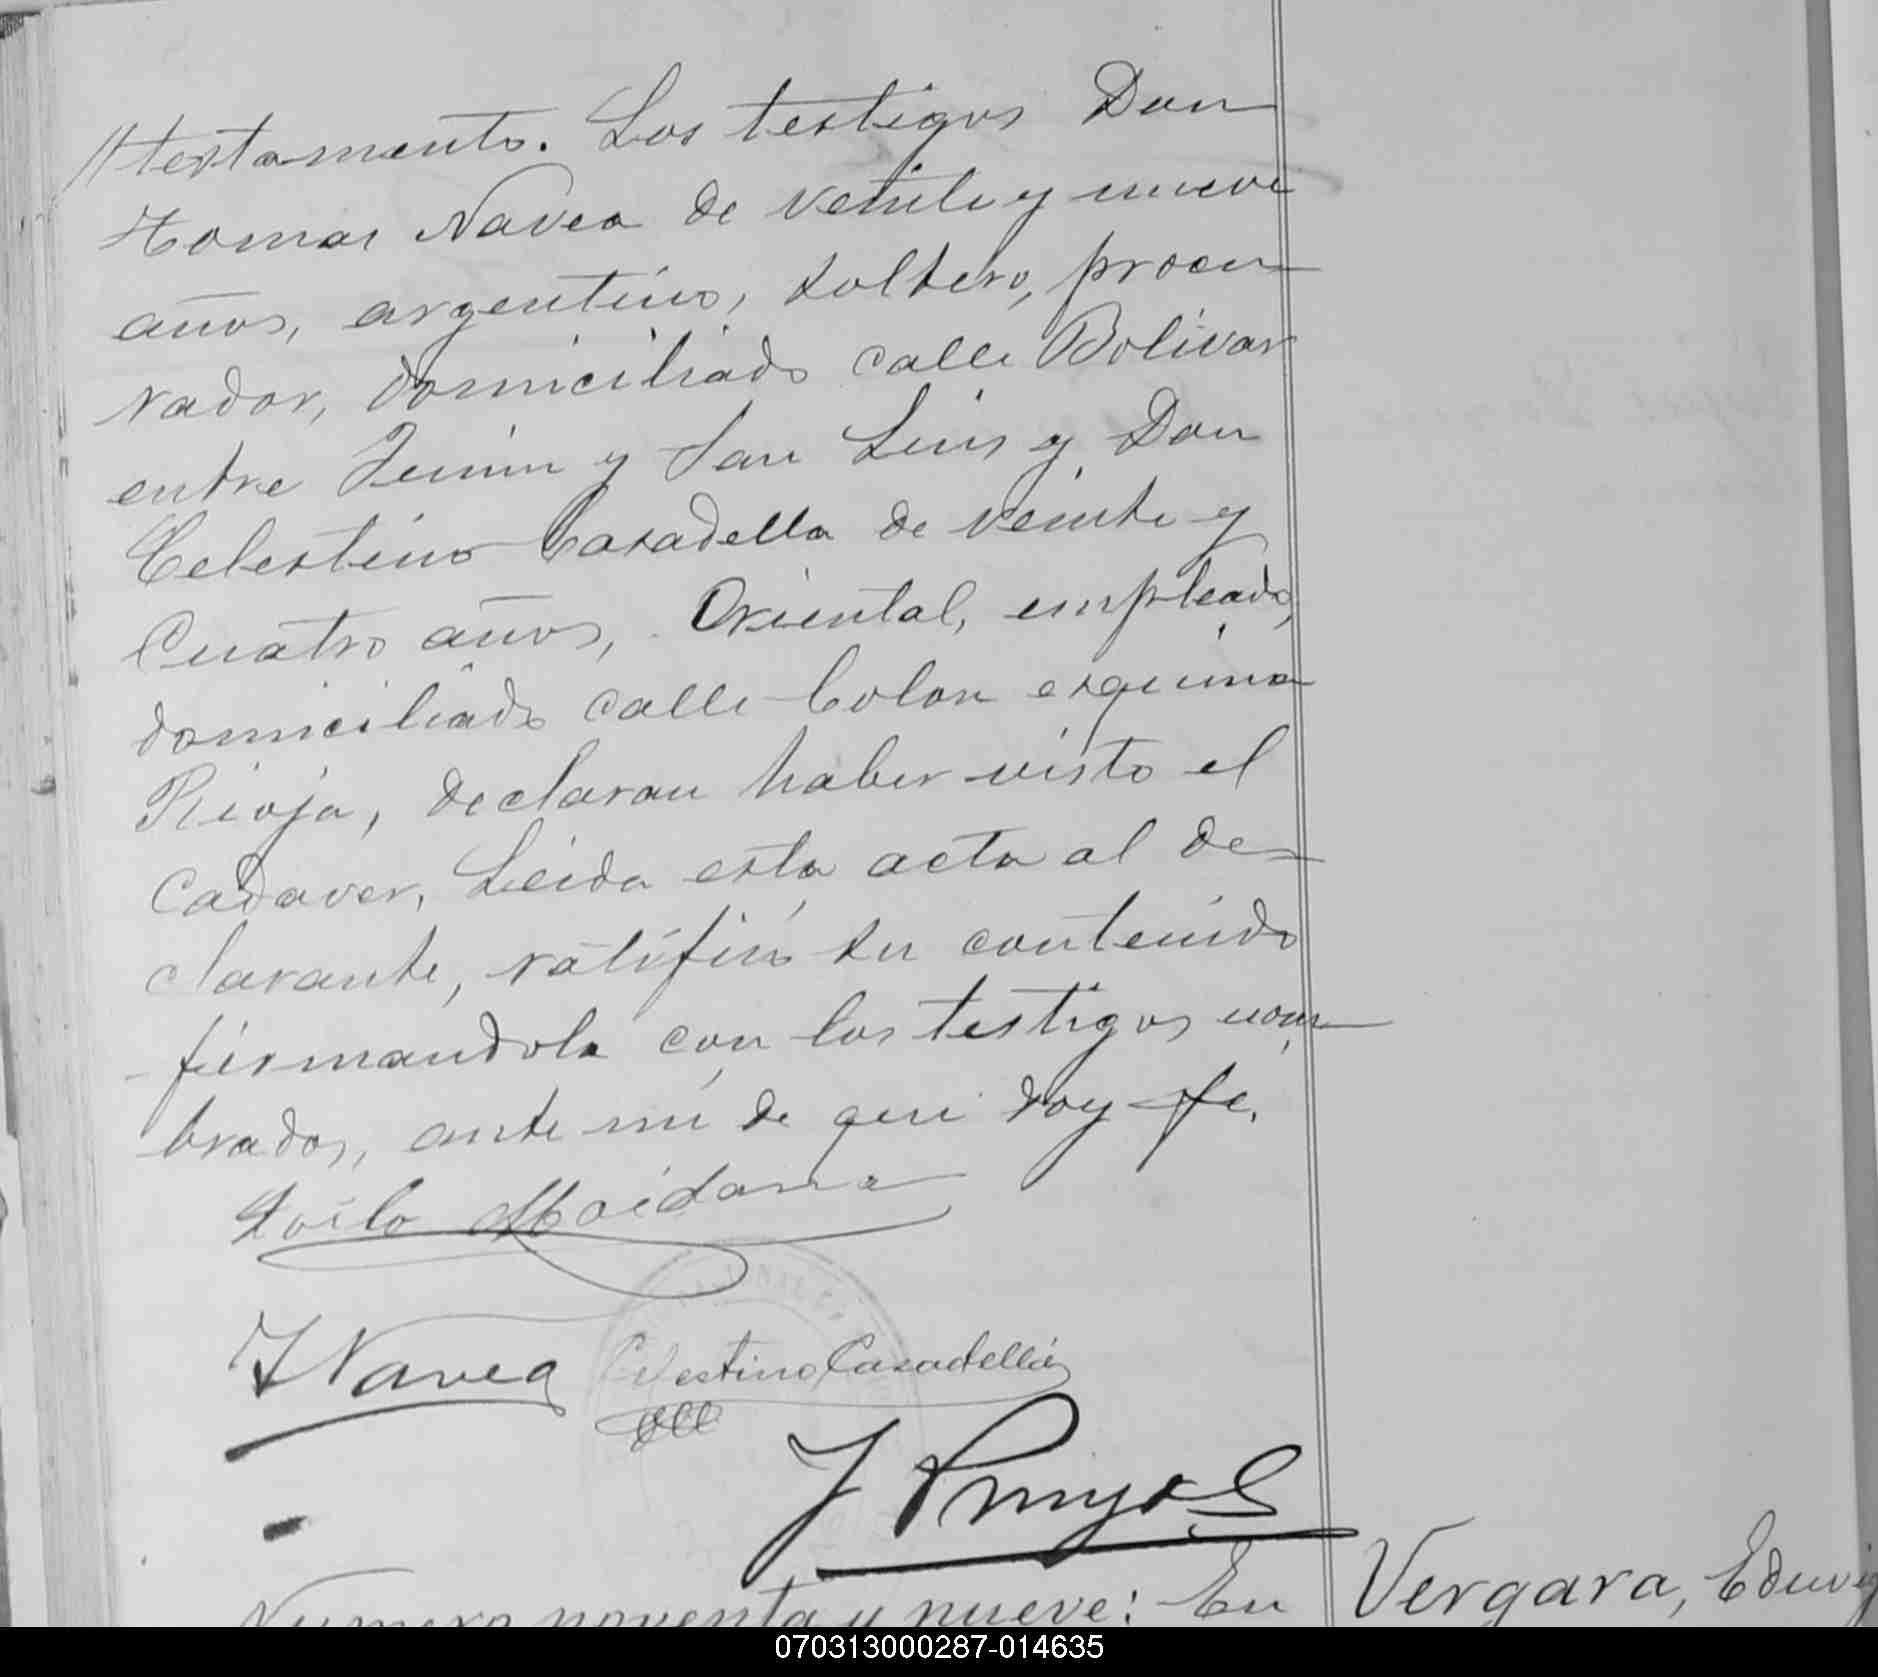 //testamento. Los testigos Don
Tomas Navea de veinte y nueve
años, argentino, soltero, procu-
rador, domiciliado calle Bolivar
entre Junin y San Luis y Don
Celestino Casadella de veinte y
Cuatro años, Oriental, empleado,
domiciliado calle Colon esquina
Rioja, declaran haber visto el
Cadaver, Leida esta acta al de-
clarante, ratificó su contenido
firmandola con los testigos nom-
brados, ante mi de que doy fe.
Zoilo Maidana
T Navea Celestino Casadellá
Numero noventa y nueve: En
Vergara, Eduvig
070313000287-014635